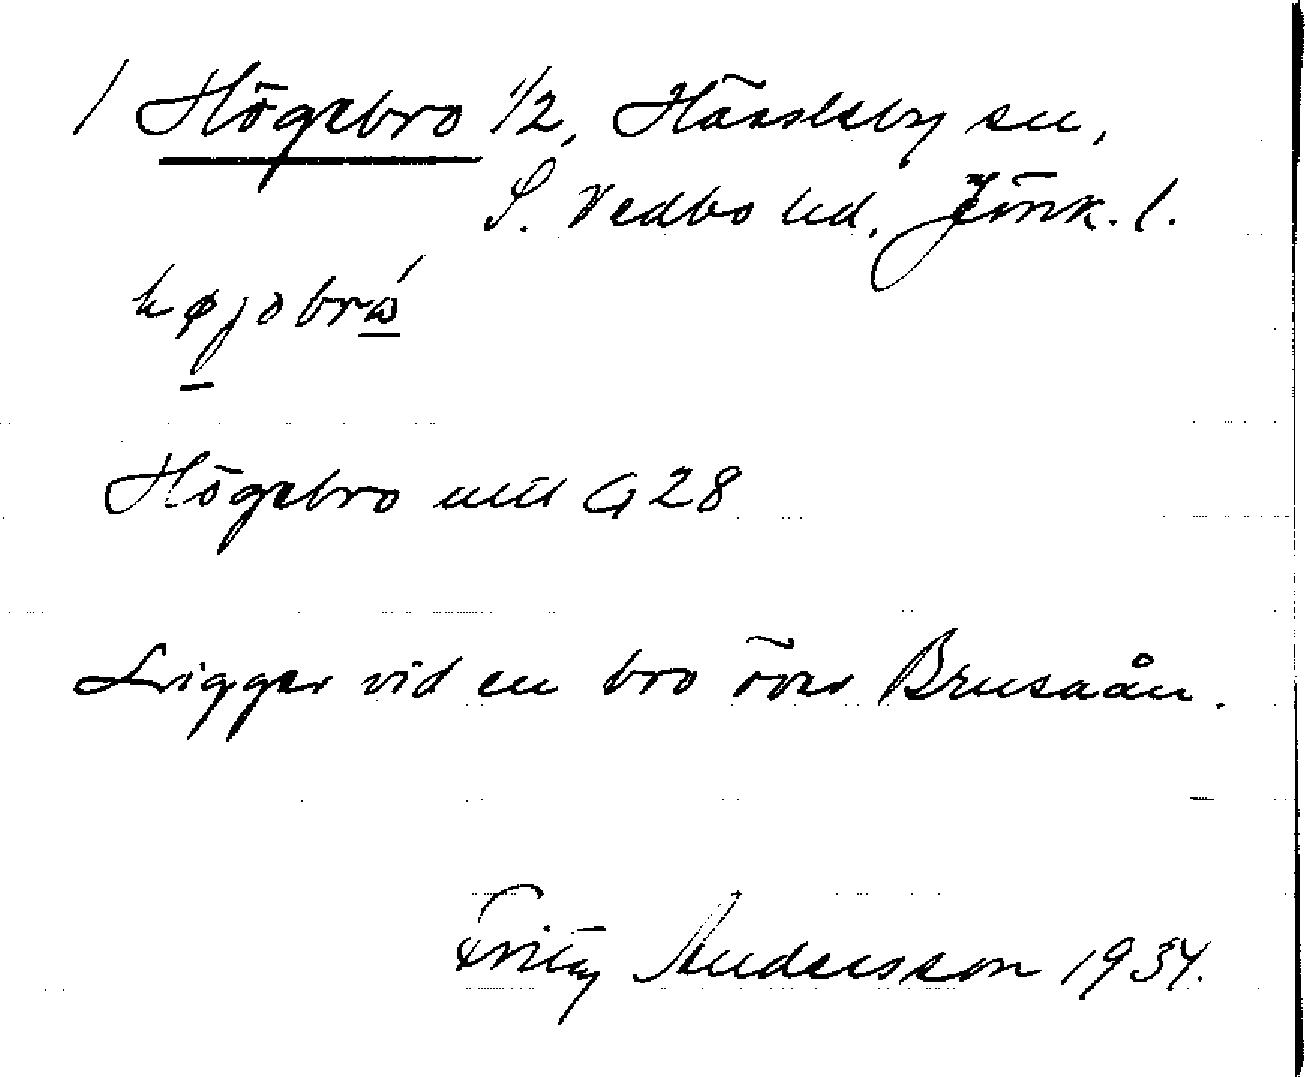 / Högebro 1/2, Hässleby sn,
S. Vedbo hd. Jönk. l.
Högebro mtl G 28
Ligger vid en bro över Brusaån.
Fritz Andersson 1934.